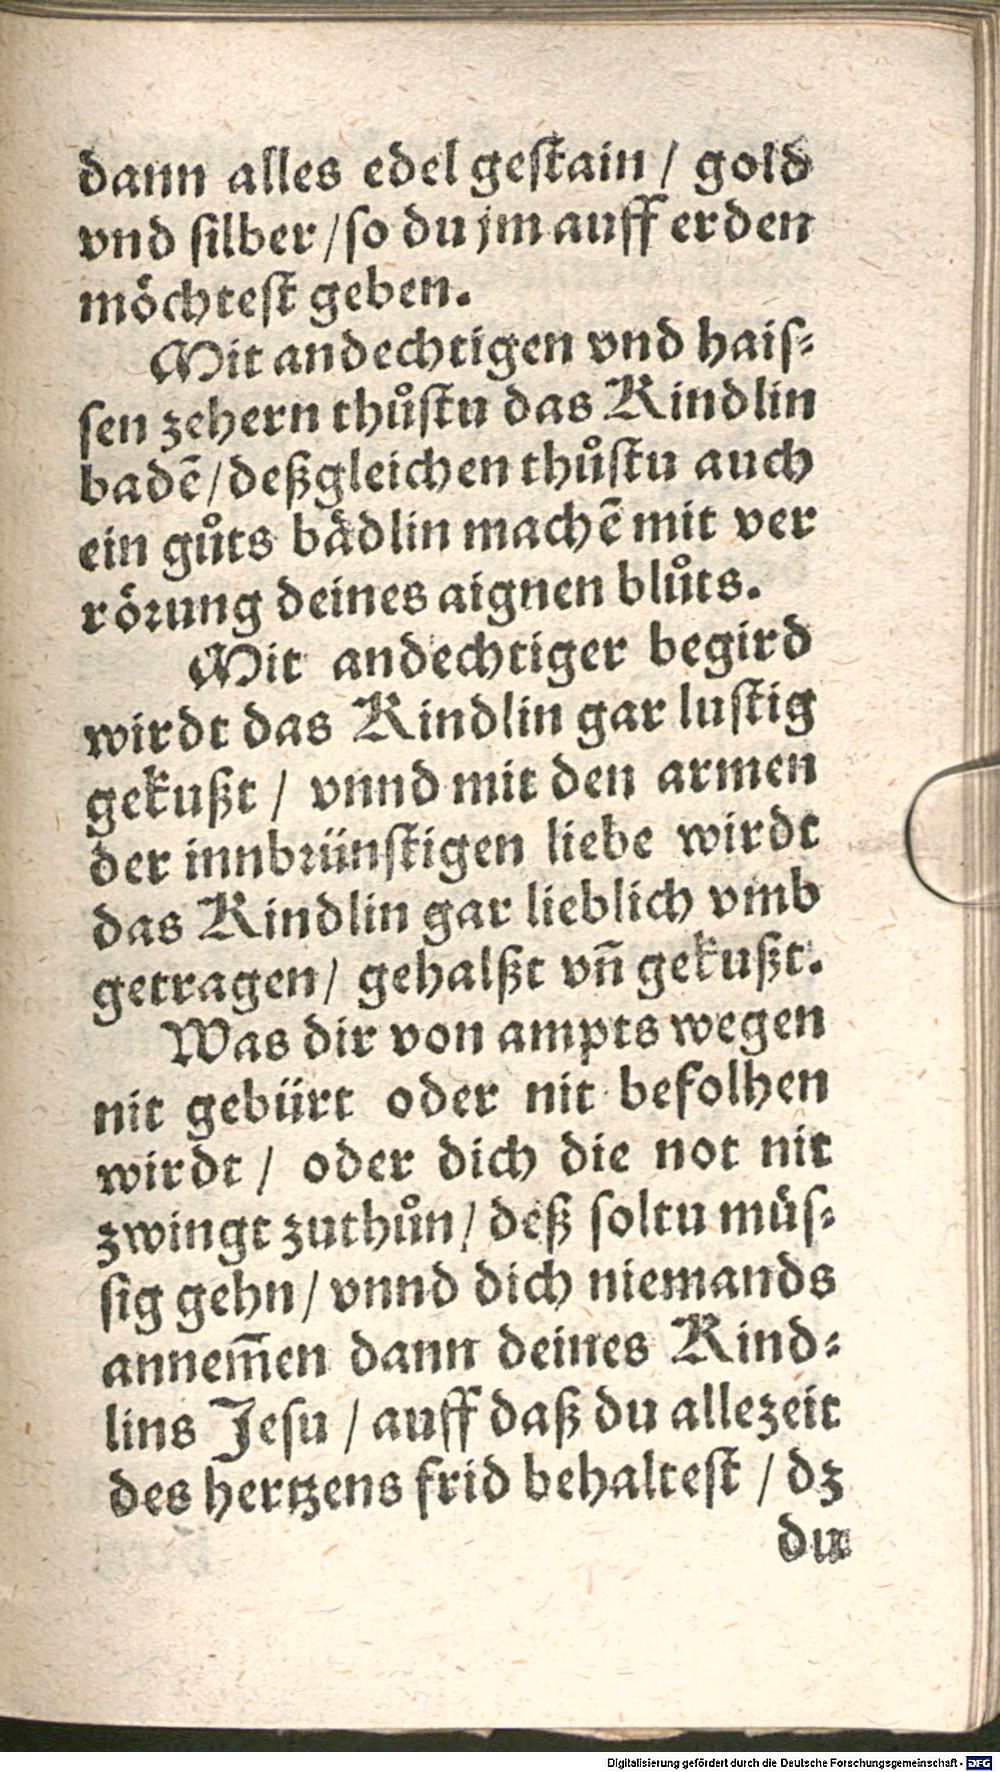 dann alles edel gestain / gold
vnd silber / so du jm auff erden
möchtest geben.
Mit andechtigen vnd haiſ⸗
sen zehern thůstu das Kindlin
badē / deßgleichen thůstu auch
ein gůts bädlin machē mit ver
rörung deines aignen blůts.
Mit andechtiger begird
wirdt das Kindlin gar lustig
gekußt / vnnd mit den armen
der innbrünstigen liebe wirdt
das Kindlin gar lieblich vmb
getragen / gehalßt vn̄ gekußt.
Was dir von ampts wegen
nit gebürt oder nit befolhen
wirdt / oder dich die not nit
zwingt zuthůn / deß soltu müſ⸗
sig gehn / vnnd dich niemands
annem̄en dann deines Kind⸗
lins Jesu / auff daß du allezeit
des hertzens frid behaltest / dz
du
Digitalisierung gefördert durch die Deutsche Forschungsgemeinschaft - DFG